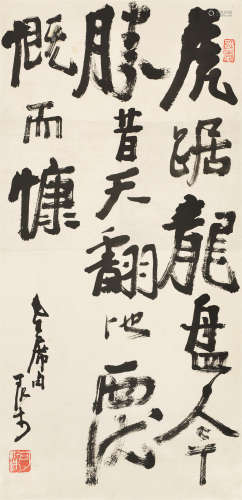 虎踞龍盤今
勝昔天翻地覆
慨而慷
毛主席句